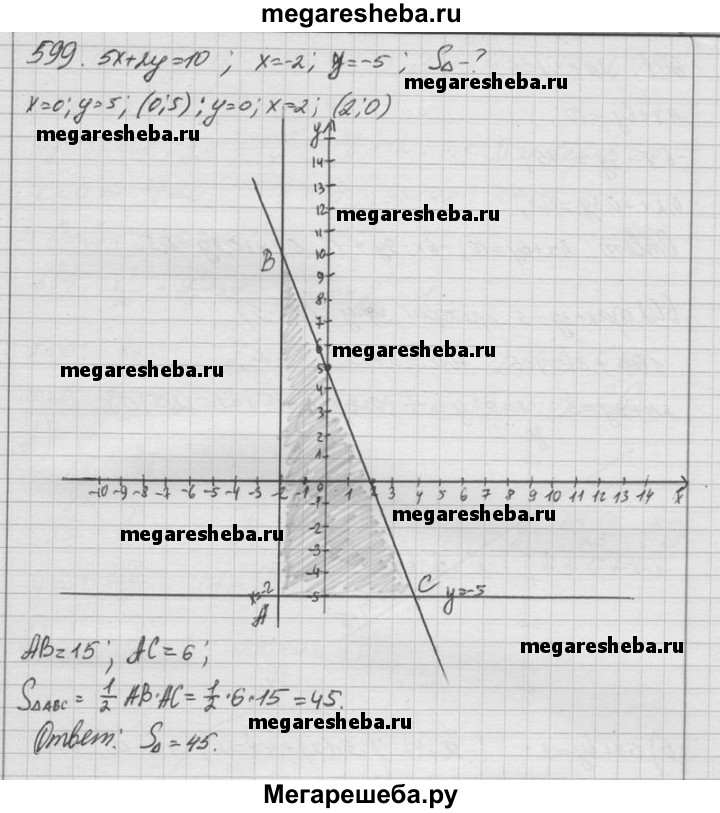 megaresheba.ru
599. 5x+2y=10; x=-2; y=-5; S△-?
megaresheba.ru
x=0; y=5; (0;5); y=0; x=2; (2;0)
megaresheba.ru
y
14
13
12
megaresheba.ru
11
10
B
9
8
7
6
megaresheba.ru
5
megaresheba.ru
4
3
2
1
-10 -9 -8 -7 -6 -5 -4 -3 -2 -1 0 1 2 3 4 5 6 7 8 9 10 11 12 13 14 x
-1
megaresheba.ru
-2
megaresheba.ru
-3
-4
C
x=-2
-5
y=-5
A
AB=15; AC=6;
megaresheba.ru
S△ABC = 1/2 AB·AC = 1/2·6·15 = 45.
megaresheba.ru
Ответ: S△=45.
Мегарешеба.ру